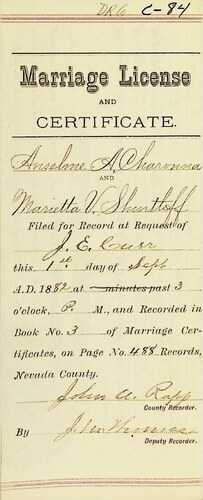 DR6 C-84
Marriage License
AND
CERTIFICATE.
Anselme A. Charonna
AND
Marietta V. Shurtleff
Filed for Record at Request of
J. E. Carr
this 1st day of Sept
A.D. 1882 at minutes past 3
o'clock, P. M., and Recorded in
Book No. 3 of Marriage Cer-
tificates, on Page No. 488 Records,
Nevada County.
John A. Rapp
County Recorder.
By J.
Deputy Recorder.